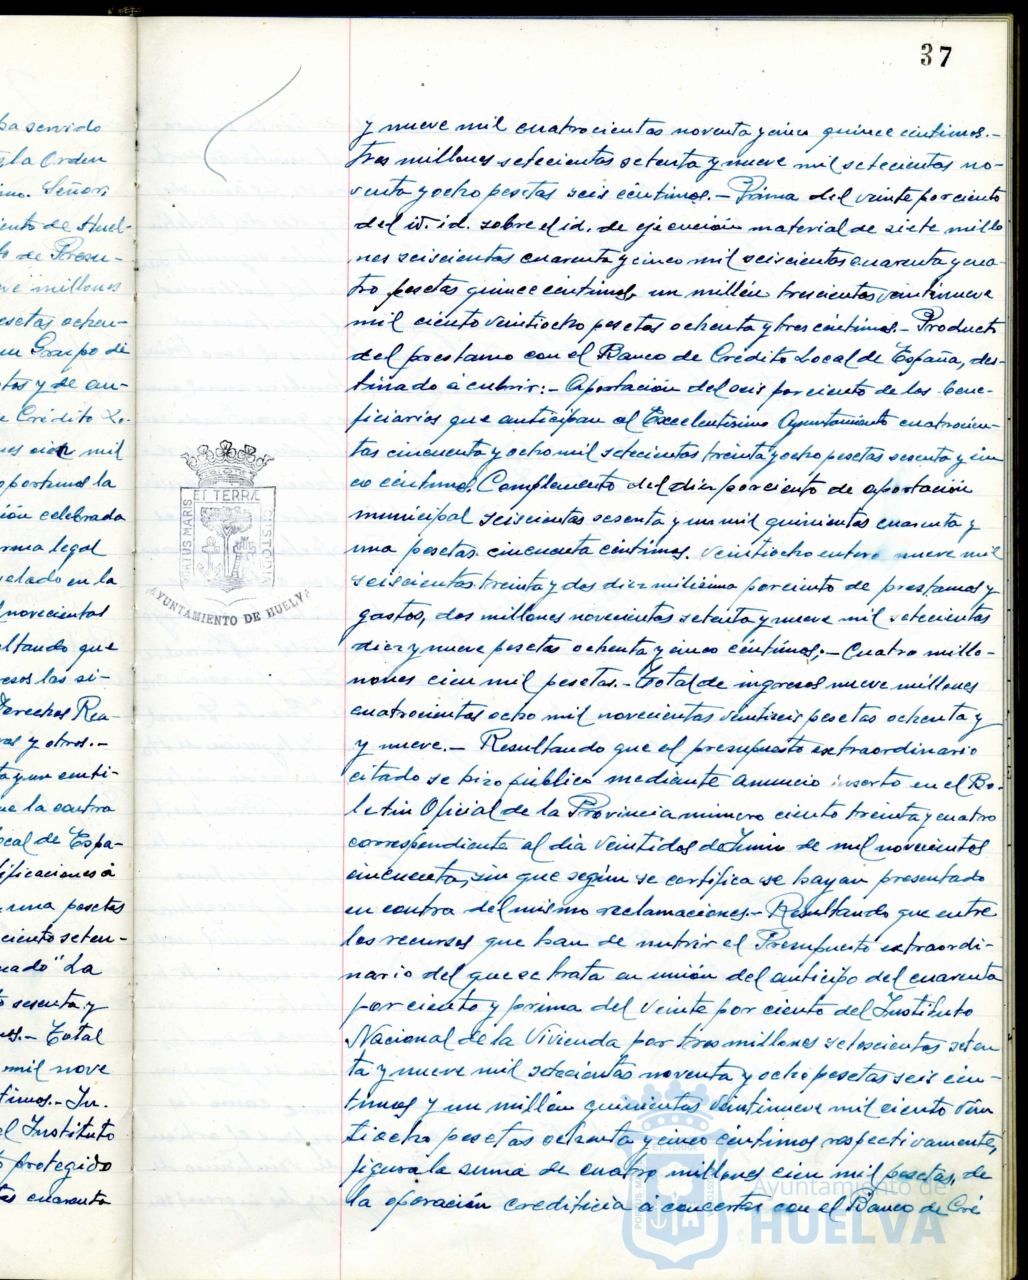 37
ha servido
la Orden
Señori
iento de Huel-
to de Presu-
ve millones
esetas ochen-
un Grupo de
tos y de an-
e Crédito Lo-
nes cien mil
oportuna la
ión celebrada
orma legal
uelado en la
l novecientos
ultando que
resos las si-
Derechos Rea-
vas y otros.-
ta y un centi-
ue la contra
ocal de Espa-
tificaciones á
una pesetas
ciento seten-
uado" La
o sesenta y
os.- Total
mil nove
timos.- In-
el Instituto
o protegido
tas cuarenta
y nueve mil cuatrocientas noventa y cinco quince céntimos.-
tres millones setecientas setenta y nueve mil setecientas no-
venta y ocho pesetas seis céntimos.- Prima del veinte por ciento
del id. id. sobre el id. de ejecución material de siete millo
nes seiscientas cuarenta y cinco mil seiscientas cuarenta y cua-
tro pesetas quince céntimos, un millón trescientas veintinueve
mil ciento veintiocho pesetas ochenta y tres céntimos.- Producto
del prestamo con el Banco de Crédito Local de España, des-
tinado á cubrir:- Aportación del seis por ciento de los bene-
ficiarios que anticipan al Excelentisimo Ayuntamiento cuatrocien-
tas cincuenta y ocho mil setecientas treinta y ocho pesetas sesenta y cin
co céntimos. Complemento del diez por ciento de aportación
municipal seiscientas sesenta y una mil quinientas cuarenta y
una pesetas cincuenta céntimos. Veintiocho entero nueve mil
seiscientas treinta y dos diez milésima por ciento de prestamos y
gastos, dos millones novecientas setenta y nueve mil setecientas
diez y nueve pesetas ochenta y cinco céntimos;- Cuatro millo-
nones cien mil pesetas.- Total de ingresos nueve millones
cuatrocientas ocho mil novecientas veintiseis pesetas ochenta y
y nueve.- Resultando que el presupuesto extraordinario
citado se hizo público mediante anuncio inserto en el Bo-
letin Oficial de la Provincia número ciento treinta y cuatro
correspondiente al día veintidos de Junio de mil novecientos
cincuenta, sin que según se certifica se hayan presentado
en contra del mismo reclamaciones.- Resultando que entre
los recursos que han de nutrir el Presupuesto extraordi-
nario del que se trata en unión del anticipo del cuarenta
por ciento y prima del veinte por ciento del Instituto
Nacional de la Vivienda por tres millones setescientas seten-
ta y nueve mil setecientas noventa y ocho pesetas seis cén-
timos y un millón quinientas veintinueve mil ciento vein
tiocho pesetas ochenta y cinco céntimos respectivamente,
figura la suma de cuatro millones cien mil pesetas, de
la operación crediticia á concertar con el Banco de Cré
PORTUS MARIS
ET TERRÆ
CUSTODIA
AYUNTAMIENTO DE HUELVA
Ayuntamiento de
HUELVA